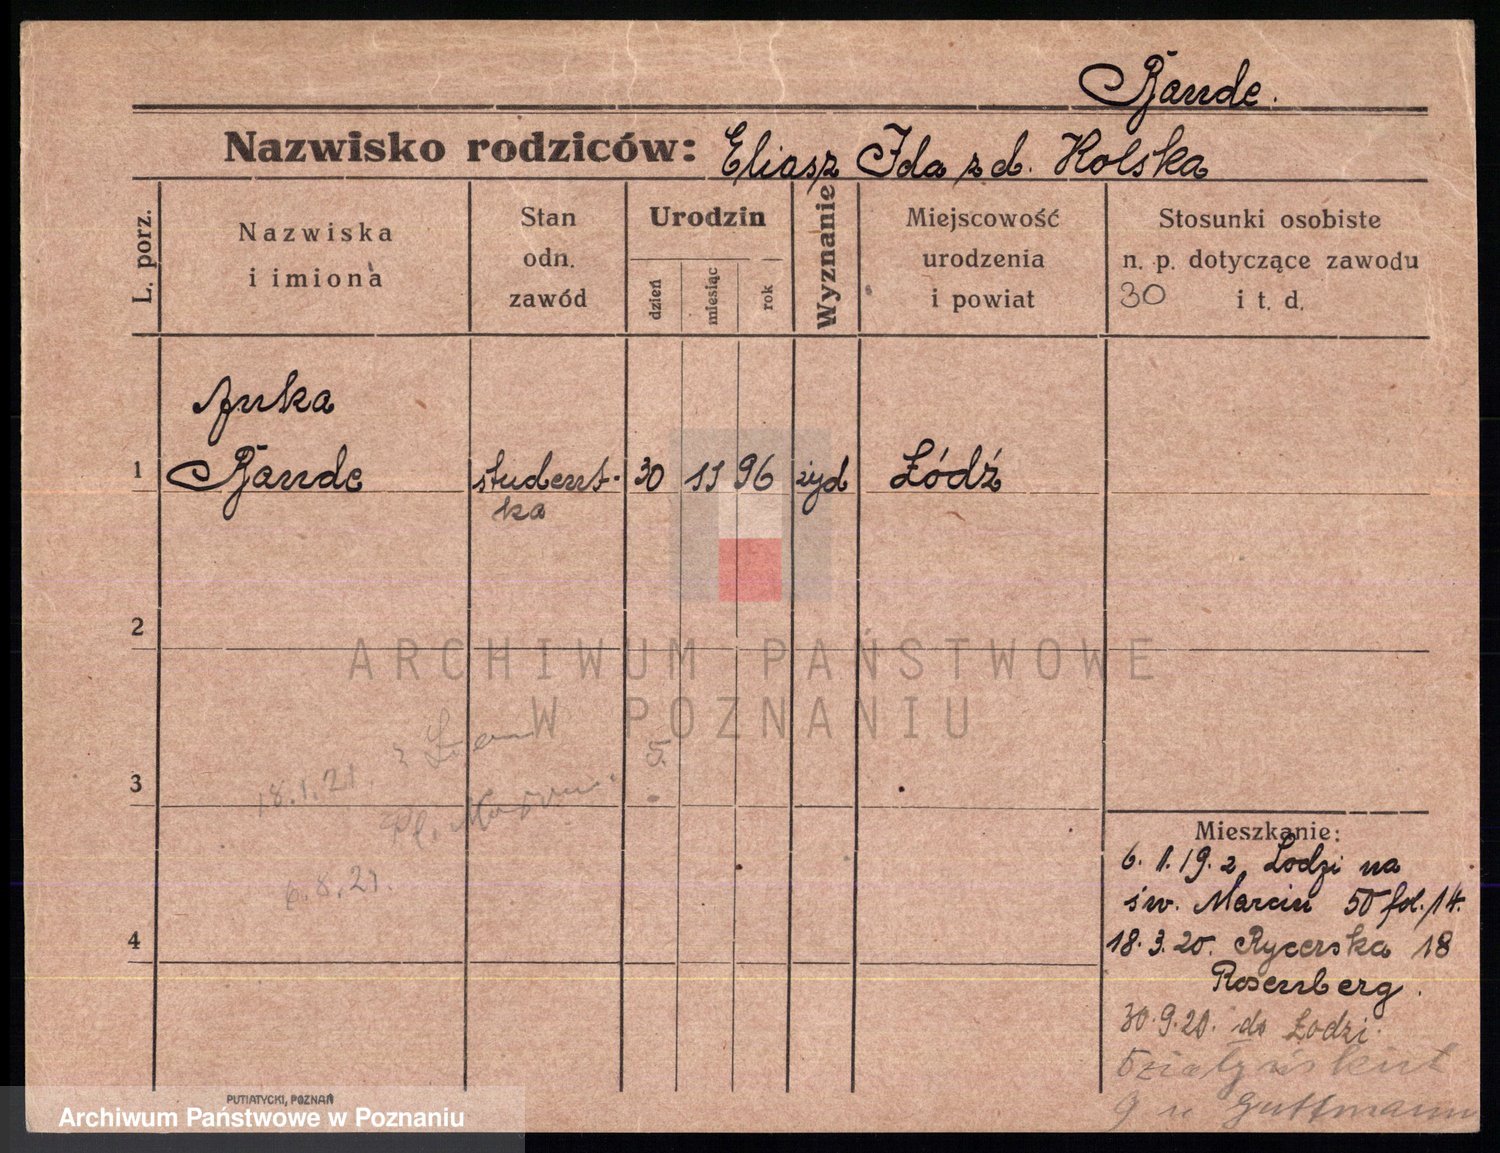 Bande.
Nazwisko rodziców: Eliasz Ida z d. Kolska
L. porz.
Nazwiska
i imiona
Stan
odn.
zawód
Urodzin
dzień
miesiąc
rok
Wyznanie
Miejscowość
urodzenia
i powiat
Stosunki osobiste
n. p. dotyczące zawodu
30 i t. d.
Anka
1 Bande student- 30 11 96 żyd Łódź
ka
2
ARCHIWUM PAŃSTWOWE
W POZNANIU
3
18.1.21. z
Pl.
6.8.21.
4
Mieszkanie:
6. 11. 19. z Lodzi na
św. Marcin 50 fol. 14.
18. 3. 20. Rycerska 18
Rosenberg.
30.9.20. do Łodzi.
Działyńskich
9 u Guttmann
PUTIATYCKI, POZNAŃ
Archiwum Państwowe w Poznaniu